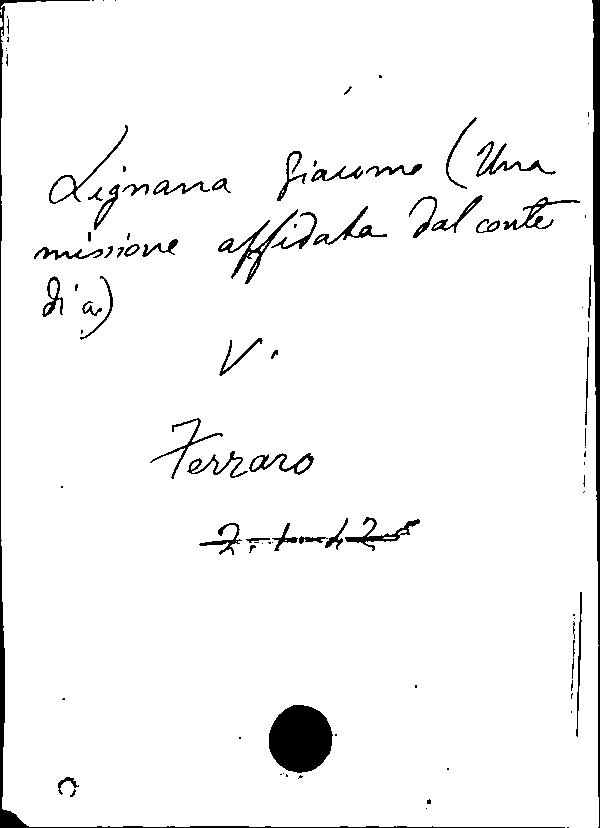 Lignana Giacomo (Una
missione affidata dal conte
di a)
V.
Ferraro